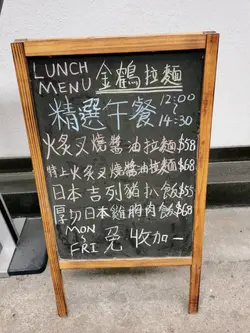 LUNCH MENU 金鶴拉麵
精選午餐 12:00 ~ 14:30
火炙叉燒醬油拉麵 $58
特上火炙叉燒醬油拉麵 $68
日本吉列豬扒飯 $55
厚切日本雞胸肉飯 $68
MON ~ FRI 免收加一